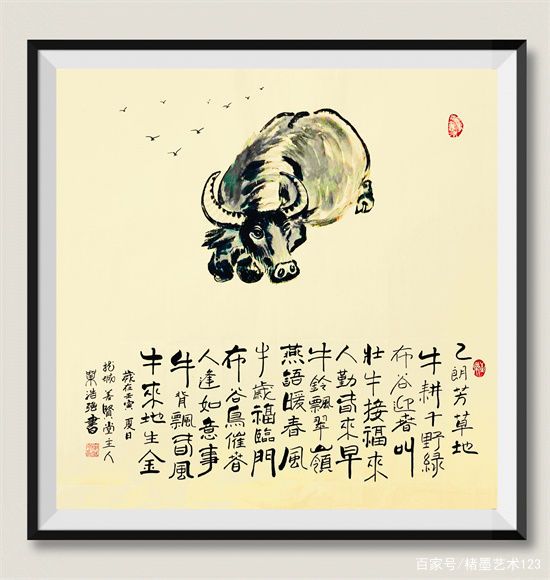 乙朗芳草地
牛耕千野綠
布谷迎春叫
壯牛接福來
人勤春來早
牛鈴飄翠嶺
燕語暖春風
牛歲福臨門
布谷鳥催春
人逢如意事
牛背飄春風
牛來地生金
歲在壬寅夏日
龍城善賢堂主人
浩強書
百家号/楮墨艺术123